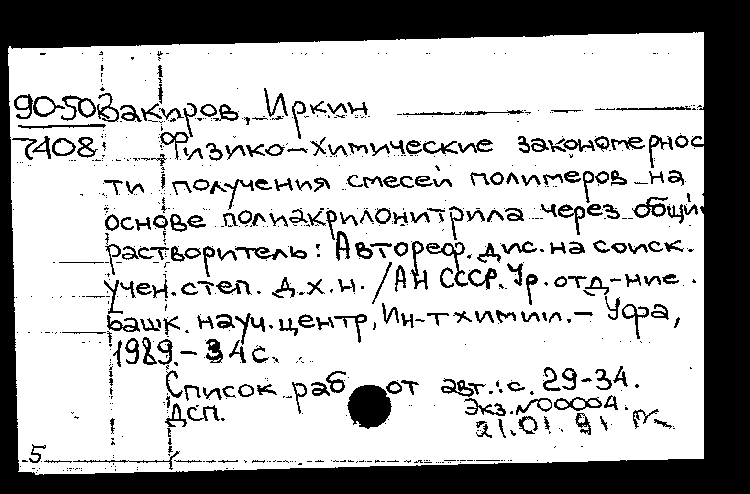 90-50 Закиров, Иркин
7408 Физико-химические закономернос
ти получения смесей полимеров на
основе полиакрилонитрила через общи
растворитель: Автореф. дис. на соиск.
учен. степ. д.х.н. /АН СССР. Ур. отд-ние.
Башк. науч. центр, Ин-т химии. – Уфа,
1989. – 34 с.
Список работ авт.: с. 29-34.
ДСП. Экз. №00004.
21.01.91
5